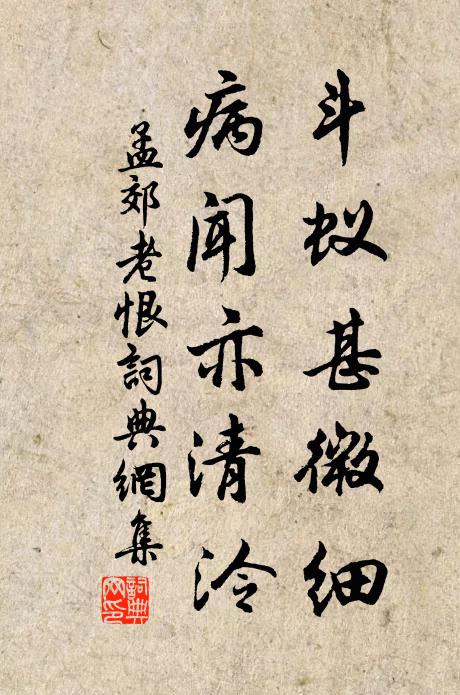 斗蚁甚微细
病闻亦清泠
孟郊老恨詞典網集
詞典網印